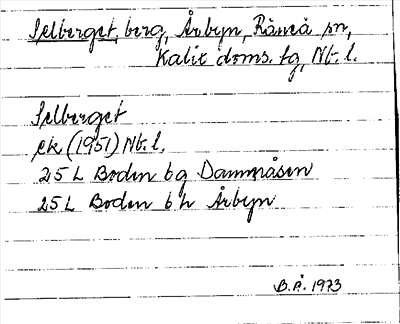 Selberget, berg, Årbyn, Råneå sn,
Kalix doms. tg, Nb. l.
Selberget
ek (1951) Nb. l.
25 L Boden bg Dammåsen
25 L Boden bh Årbyn
B.Å. 1973